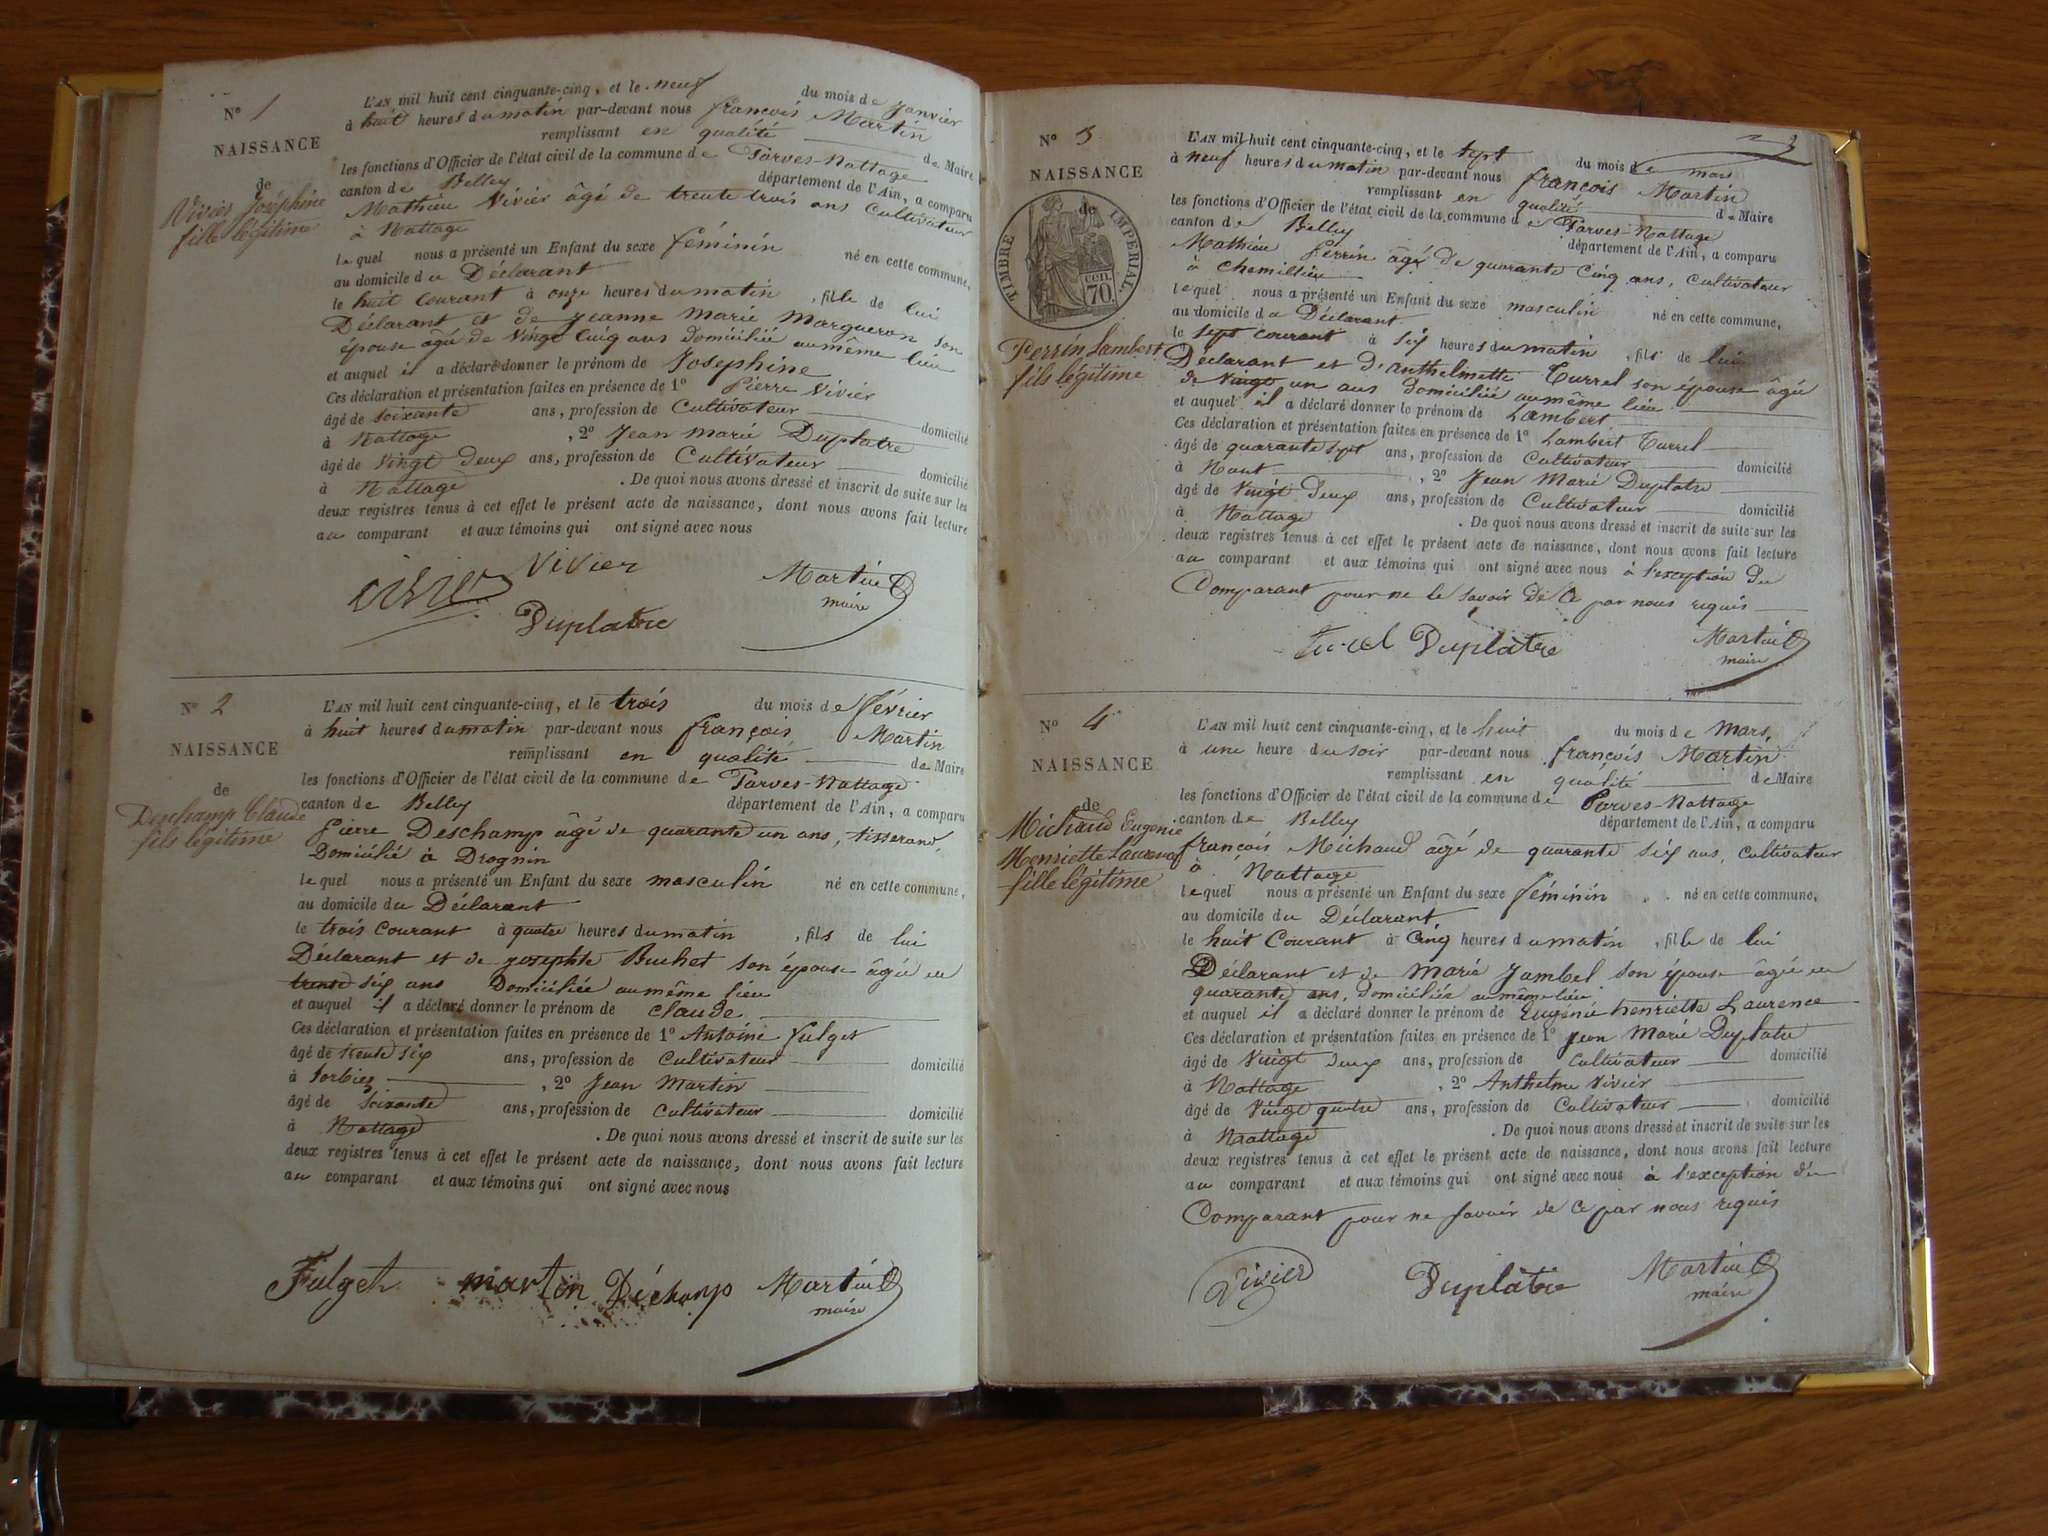 N° 1
NAISSANCE
de
Vivier Joséphine
fille légitime
L'AN mil huit cent cinquante-cinq, et le neuf du mois de Janvier
à huit heures du matin par-devant nous françois Martin
remplissant en qualité de Maire
les fonctions d'Officier de l'état civil de la commune de Parves-Nattage
canton de Belley département de l'Ain, a comparu
Mathieu Vivier âgé de trente trois ans cultivateur
à Nattage
lequel nous a présenté un Enfant du sexe féminin né en cette commune,
au domicile du Déclarant
le huit courant à onze heures du matin, fille de lui
Déclarant et de Jeanne Marie Margueron son
épouse âgée de vingt cinq ans domiciliée au même lieu
et auquel il a déclaré donner le prénom de Josephine
Ces déclaration et présentation faites en présence de 1° Pierre Vivier
âgé de soixante ans, profession de Cultivateur domicilié
à Nattage, 2° Jean Marie Duplatre
âgé de vingt deux ans, profession de Cultivateur domicilié
à Nattage. De quoi nous avons dressé et inscrit de suite sur les
deux registres tenus à cet effet le présent acte de naissance, dont nous avons fait lecture
au comparant et aux témoins qui ont signé avec nous
Vivier
Martin
maire
Duplatre
N° 2
NAISSANCE
de
Deschamp Claude
fils légitime
L'AN mil huit cent cinquante-cinq, et le trois du mois de février
à huit heures du matin par-devant nous françois Martin
remplissant en qualité de Maire
les fonctions d'Officier de l'état civil de la commune de Parves-Nattage
canton de Belley département de l'Ain, a comparu
Pierre Deschamp âgé de quarante un ans, tisserand,
Domicilié à Drognin
lequel nous a présenté un Enfant du sexe masculin né en cette commune,
au domicile du Déclarant
le trois courant à quatre heures du matin, fils de lui
Déclarant et de Josephte Buchet son épouse âgée de
trente six ans Domiciliée au même lieu
et auquel il a déclaré donner le prénom de Claude
Ces déclaration et présentation faites en présence de 1° Antoine fulget
âgé de trente six ans, profession de Cultivateur domicilié
à Sorbier, 2° Jean Martin
âgé de soixante ans, profession de Cultivateur domicilié
à Nattage. De quoi nous avons dressé et inscrit de suite sur les
deux registres tenus à cet effet le présent acte de naissance, dont nous avons fait lecture
au comparant et aux témoins qui ont signé avec nous
Fulget martin Déchamp Martin
maire
N° 3
NAISSANCE
de
TIMBRE IMPERIAL
70 cen.
Perrin Lambert
fils légitime
L'AN mil huit cent cinquante-cinq, et le sept du mois de mars
à neuf heures du matin par-devant nous françois Martin
remplissant en qualité de Maire
les fonctions d'Officier de l'état civil de la commune de Parves-Nattage
canton de Belley département de l'Ain, a comparu
Mathieu Perrin âgé de quarante cinq ans, cultivateur
à Chemillieu
lequel nous a présenté un Enfant du sexe masculin né en cette commune,
au domicile du Déclarant
le sept courant à six heures du matin, fils de lui
Déclarant et d'anthelmette Turrel son épouse âgée
de vingt un ans domiciliée au même lieu
et auquel il a déclaré donner le prénom de Lambert
Ces déclaration et présentation faites en présence de 1° Lambert Turrel
âgé de quarante sept ans, profession de Cultivateur domicilié
à Nant, 2° Jean Marie Duplatre
âgé de vingt deux ans, profession de Cultivateur domicilié
à Nattage. De quoi nous avons dressé et inscrit de suite sur les
deux registres tenus à cet effet le présent acte de naissance, dont nous avons fait lecture
au comparant et aux témoins qui ont signé avec nous à l'exception du
Comparant pour ne le savoir de ce par nous requis
Duplâtre Martin
maire
N° 4
NAISSANCE
de
Michaud Eugenie
Henriette Laurence
fille légitime
L'AN mil huit cent cinquante-cinq, et le huit du mois de Mars,
à une heure du soir par-devant nous françois Martin
remplissant en qualité de Maire
les fonctions d'Officier de l'état civil de la commune de Parves-Nattage
canton de Belley département de l'Ain, a comparu
françois Michaud âgé de quarante six ans, cultivateur
à Nattage
lequel nous a présenté un Enfant du sexe féminin né en cette commune,
au domicile du Déclarant
le huit Courant à cinq heures du matin, fille de lui
Déclarant et de Marie Jambel son épouse âgée de
quarante ans, domiciliée au même lieu
et auquel il a déclaré donner le prénom de Eugenie henriette Laurence
Ces déclaration et présentation faites en présence de 1° Jean Marie Duplatre
âgé de vingt deux ans, profession de Cultivateur domicilié
à Nattage, 2° Anthelme Vivier
âgé de vingt quatre ans, profession de Cultivateur domicilié
à Nattage. De quoi nous avons dressé et inscrit de suite sur les
deux registres tenus à cet effet le présent acte de naissance, dont nous avons fait lecture
au comparant et aux témoins qui ont signé avec nous à l'exception du
Comparant pour ne savoir de ce par nous requis
Vivier Duplâtre Martin
maire